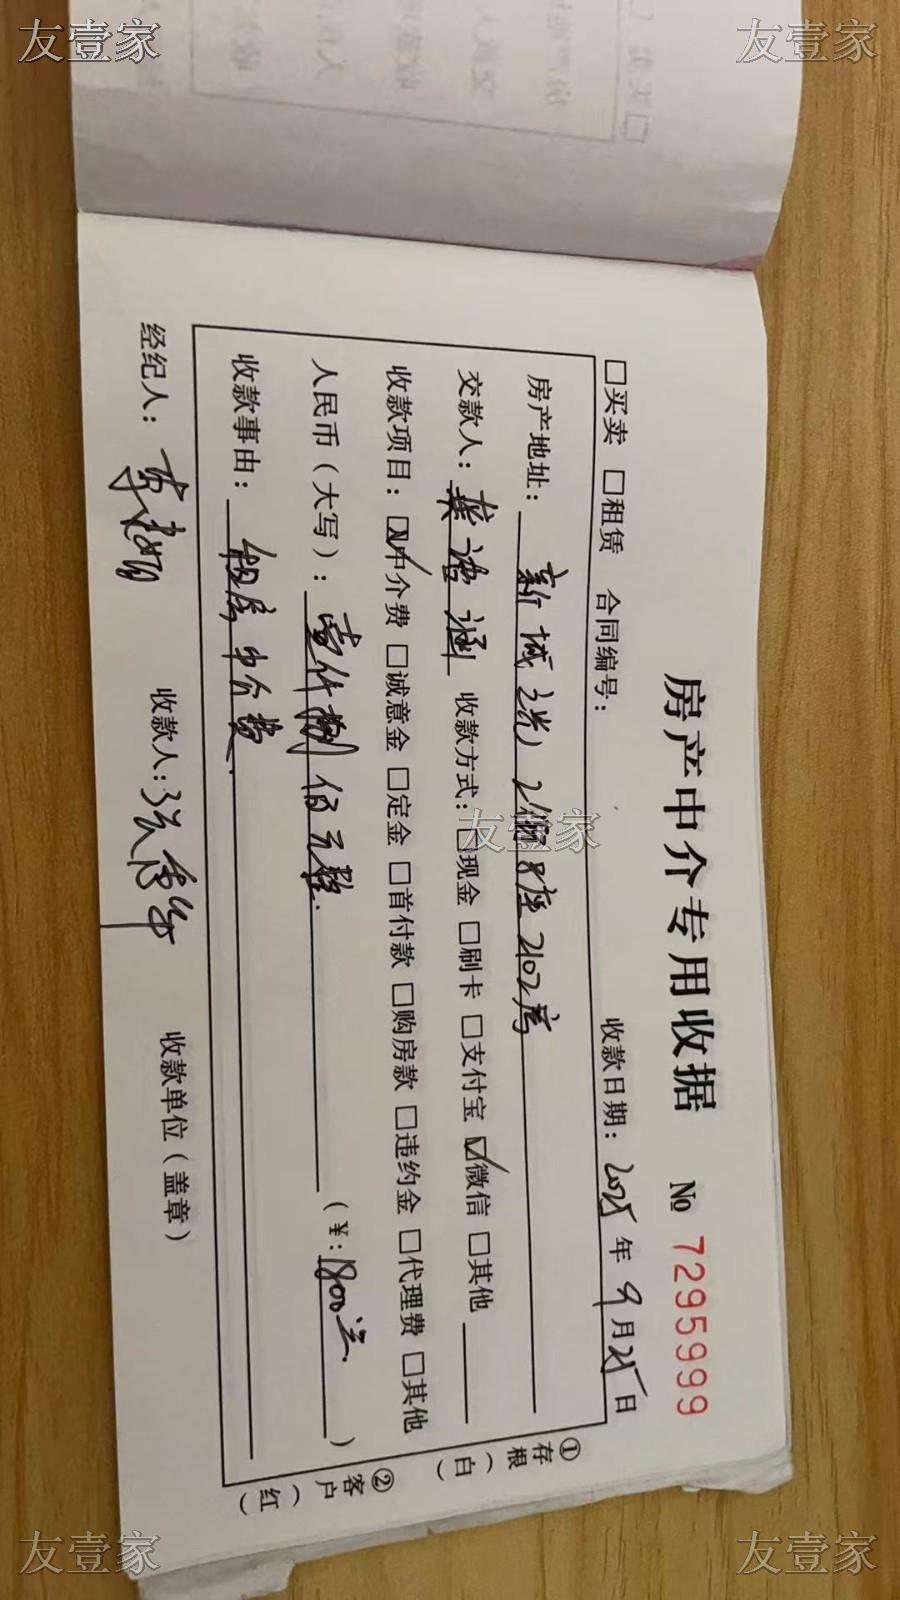 友壹家 友壹家
房产中介专用收据 № 7295999
收款日期：2025年9月25日
□买卖 □租赁 合同编号：
房产地址：新城 2期8座2102房
交款人：龚语涵 收款方式：□现金 □刷卡 □支付宝 ☑微信 □其他
收款项目：☑中介费 □诚意金 □定金 □首付款 □购房款 □违约金 □代理费 □其他
人民币（大写）：壹仟捌佰元整. （¥：1800元）
收款事由：租房中介费.
经纪人： 收款人： 收款单位（盖章）
①存根（白）
②客户（红）
友壹家
友壹家 友壹家